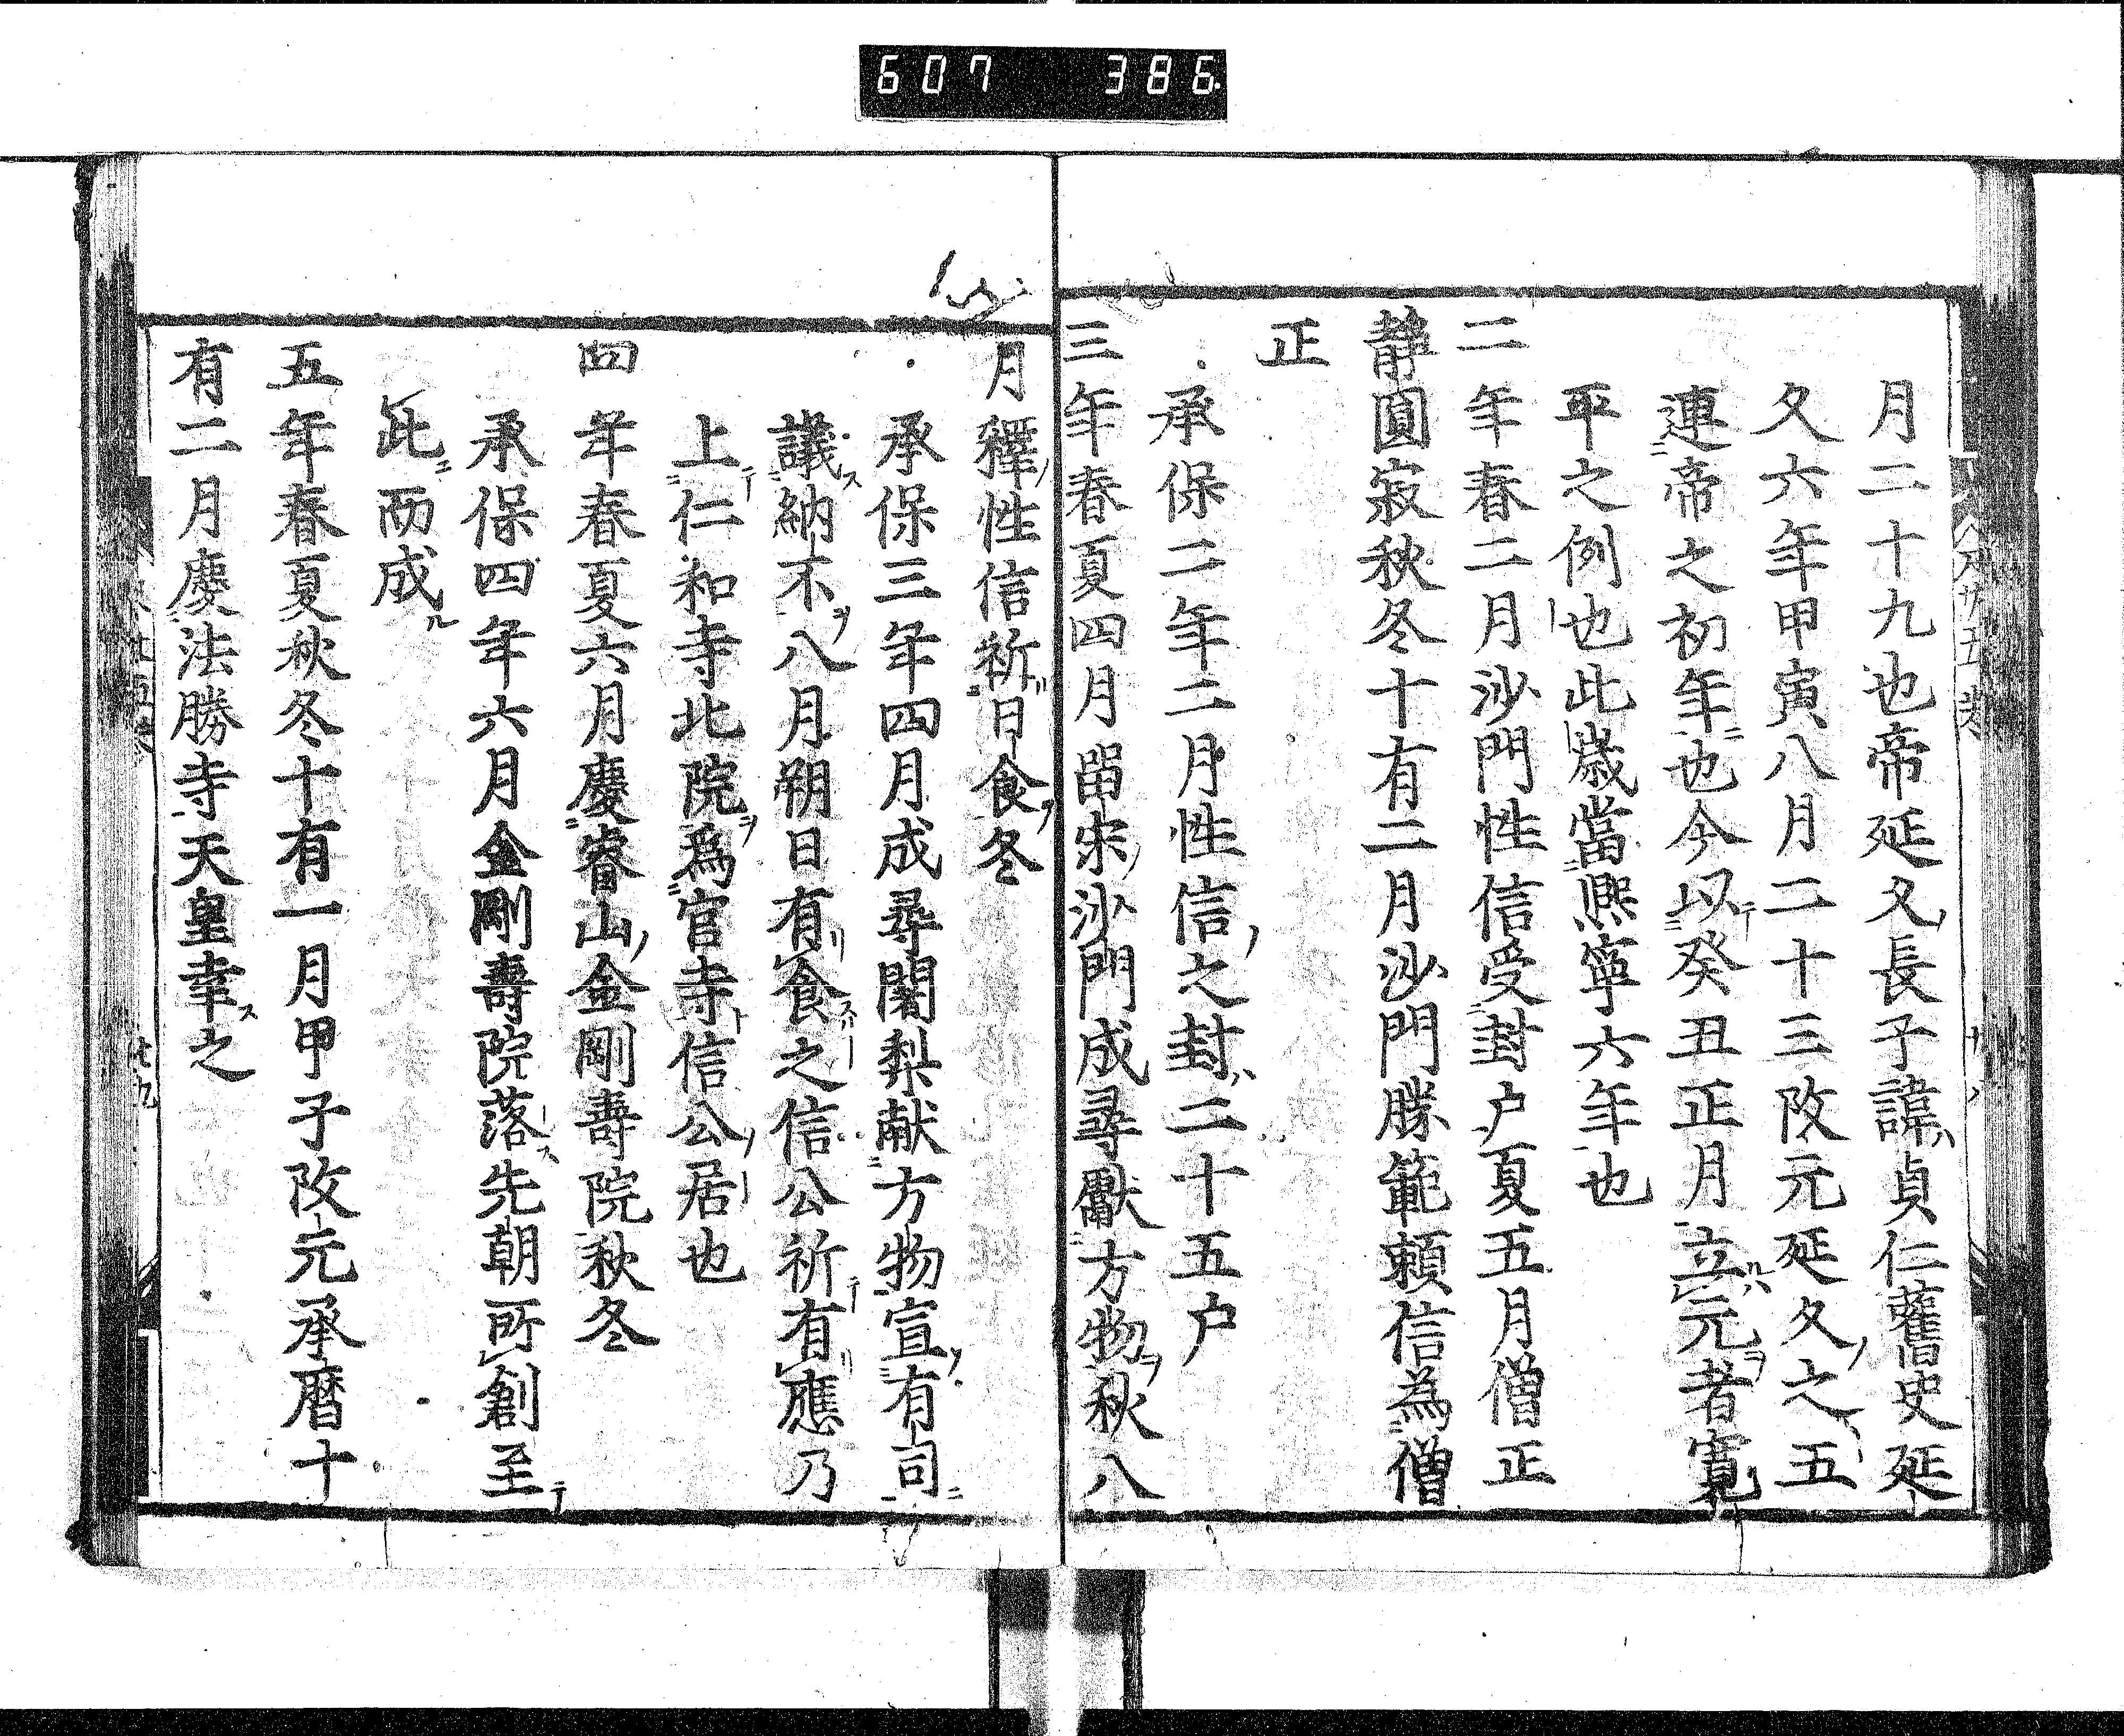 607 386
月二十九也帝延久長子諱貞仁舊史延
久六年甲寅八月二十三改元延久之五
連帝之初年也今以癸丑正月立元者寛
平之例也此歲當熈寧六年也
二年春二月沙門性信受封户夏五月僧正
静圓寂秋冬十有二月沙門勝範頼信為僧
正
承保二年二月性信之封二十五户
三年春夏四月留宋沙門成尋獻方物秋八
月釋性信祈日食冬
承保三年四月成尋闍梨献方物宣有司
議納不八月朔日有食之信公祈有應乃
上仁和寺北院爲官寺信公居也
四年春夏六月慶睿山金剛壽院秋冬
承保四年六月金剛壽院落先朝所創至
此而成
五年春夏秋冬十有一月甲子改元承暦十
有二月慶法勝寺天皇幸之